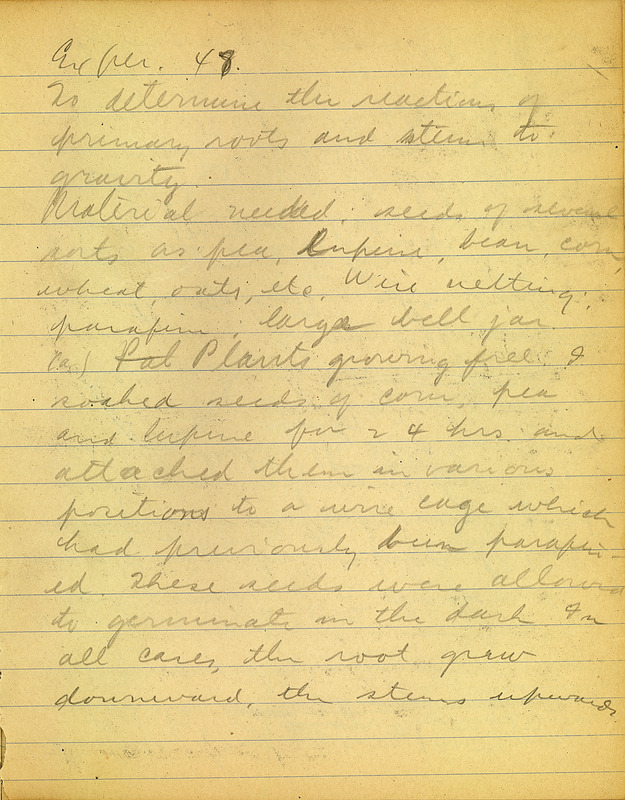 Exper. 48.
To determine the reactions of
primary roots and stems to
gravity.
Material needed: seeds of several
sorts as pea, lupine, bean, corn,
wheat, oats, etc. Wire netting,
parafine, large bell jar.
(a) Pal Plants growing free. I
soaked seeds of corn, pea
and lupine for 24 hrs. and
attached them in various
positions to a wire cage which
had previously been parafin-
ed. These seeds were allowed
to germinate in the dark. In
all cases, the root grew
downward, the stems upwards